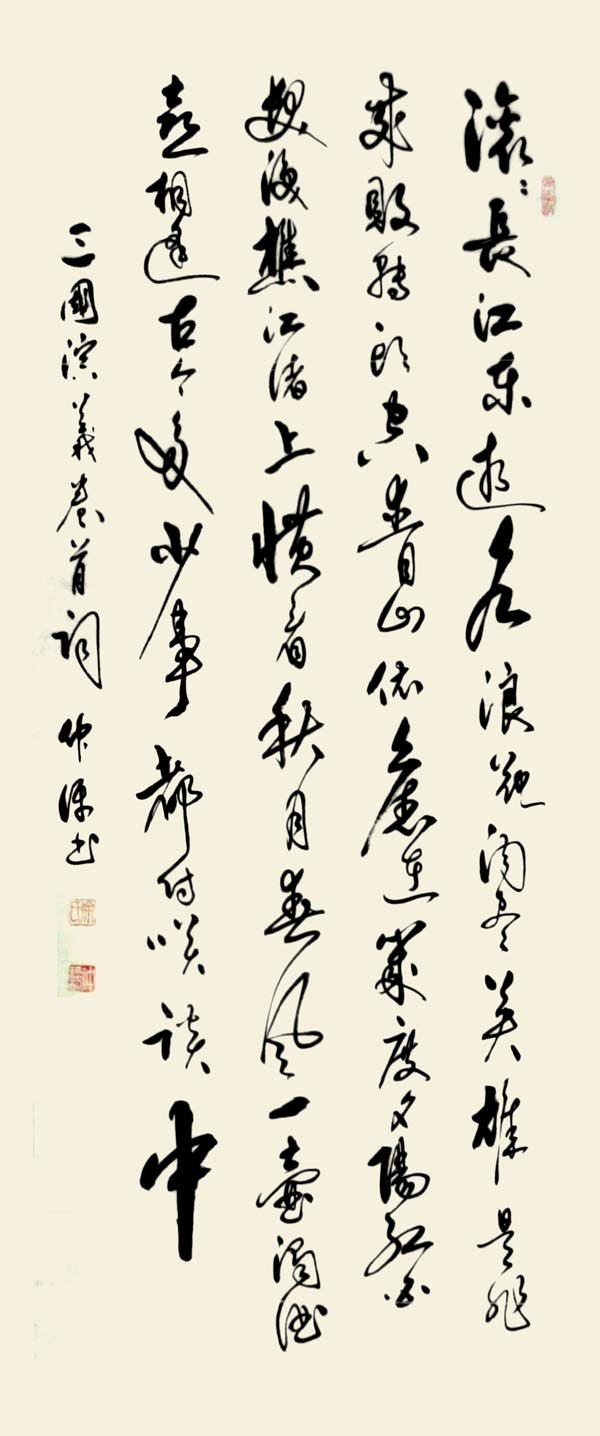 滚滚長江东逝水浪花淘尽英雄是非
成敗轉頭空青山依舊在幾度夕陽紅白
髮漁樵江渚上慣看秋月春風一壺濁酒
喜相逢古今多少事都付笑談中
三國演義卷首詞 仲 书